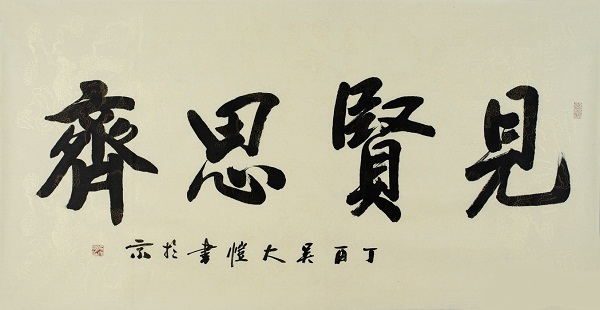 見賢思齊
丁酉吴大愷書於京